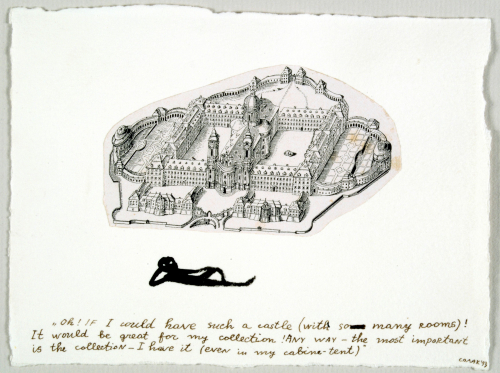 „Oh! IF I could have such a castle (with so many rooms)!
It would be great for my collection! ANY WAY – the most important
is the collection – I have it (even in my cabine-tent)"